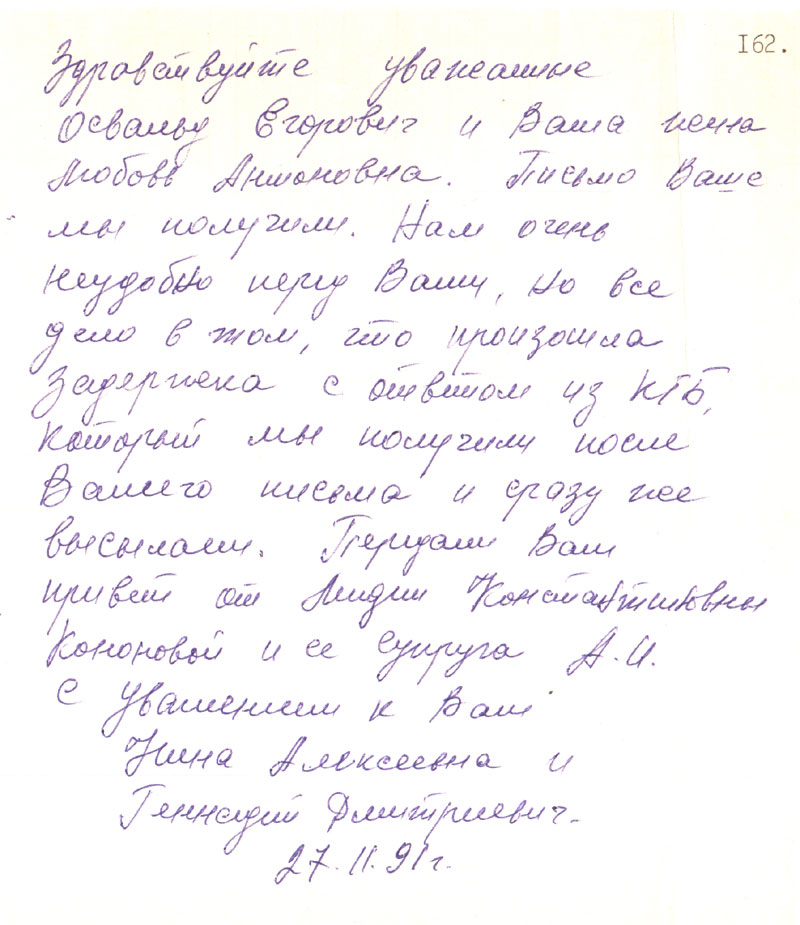 162.
Здравствуйте уважаемые
Освальд Егорович и Ваша жена
Любовь Антоновна. Письмо Ваше
мы получили. Нам очень
неудобно перед Вами, но все
дело в том, что произошла
задержка с ответом из КГБ,
который мы получили после
Вашего письма и сразу же
высылаем. Передаем Вам
привет от Лидии Константиновны
Кононовой и ее супруга А.И.
С уважением к Вам
Нина Алексеевна и
Геннадий Дмитриевич.
27.11.91г.